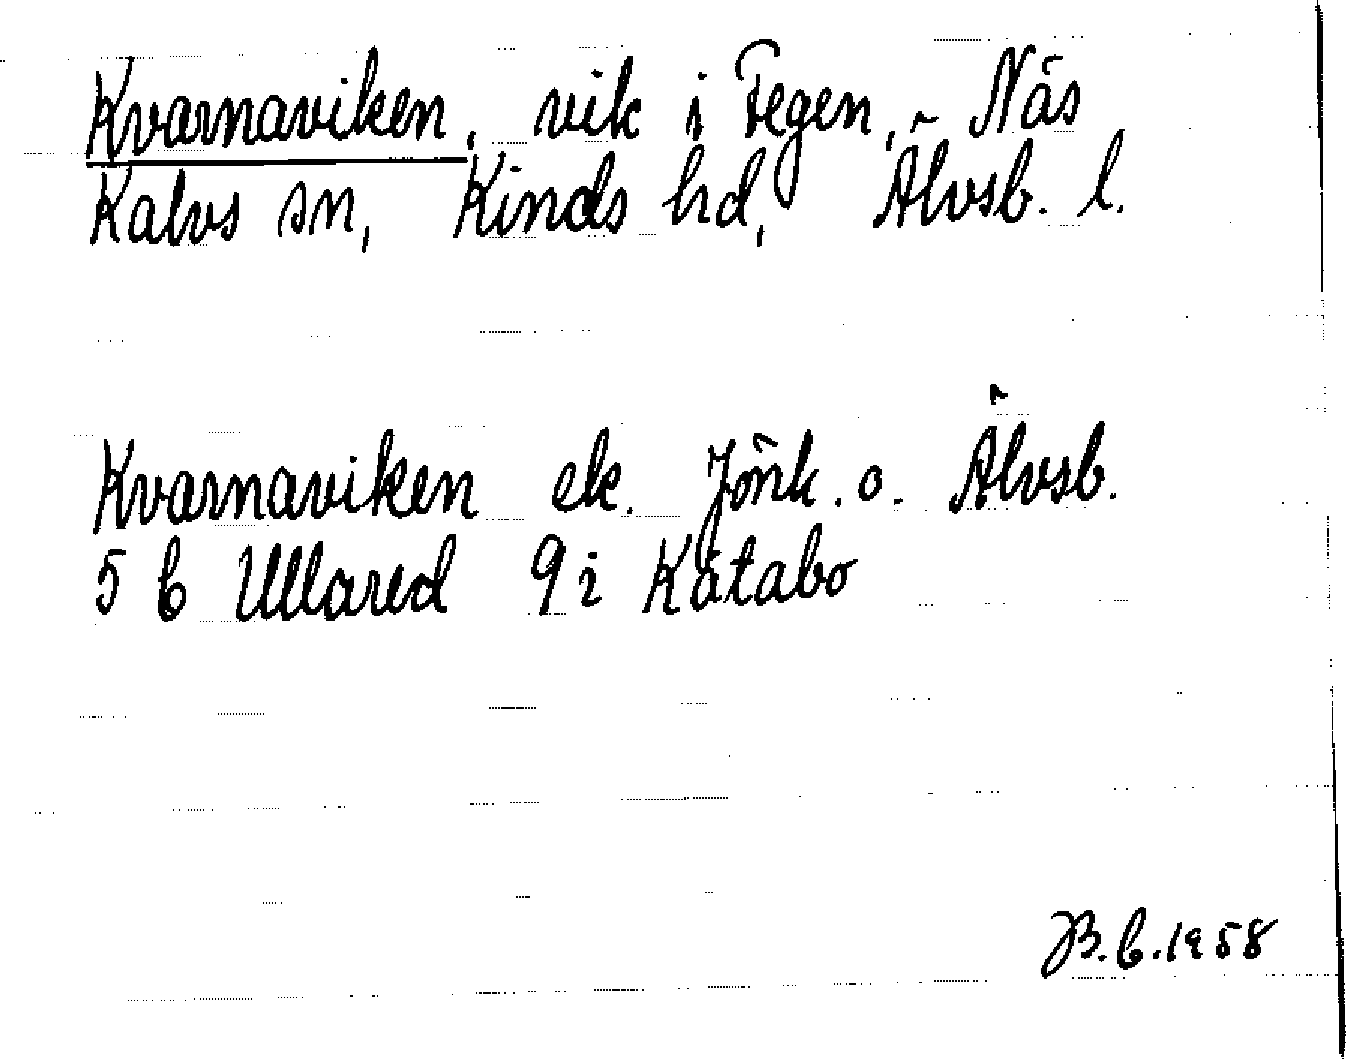 Kvarnaviken, vik i Fegen, Näs
Kalvs sn, Kinds hd, Älvsb. l.
Kvarnaviken ek. Jönk. o. Älvsb.
5 C Ullared 9 i Kåtabo
B.C.1958